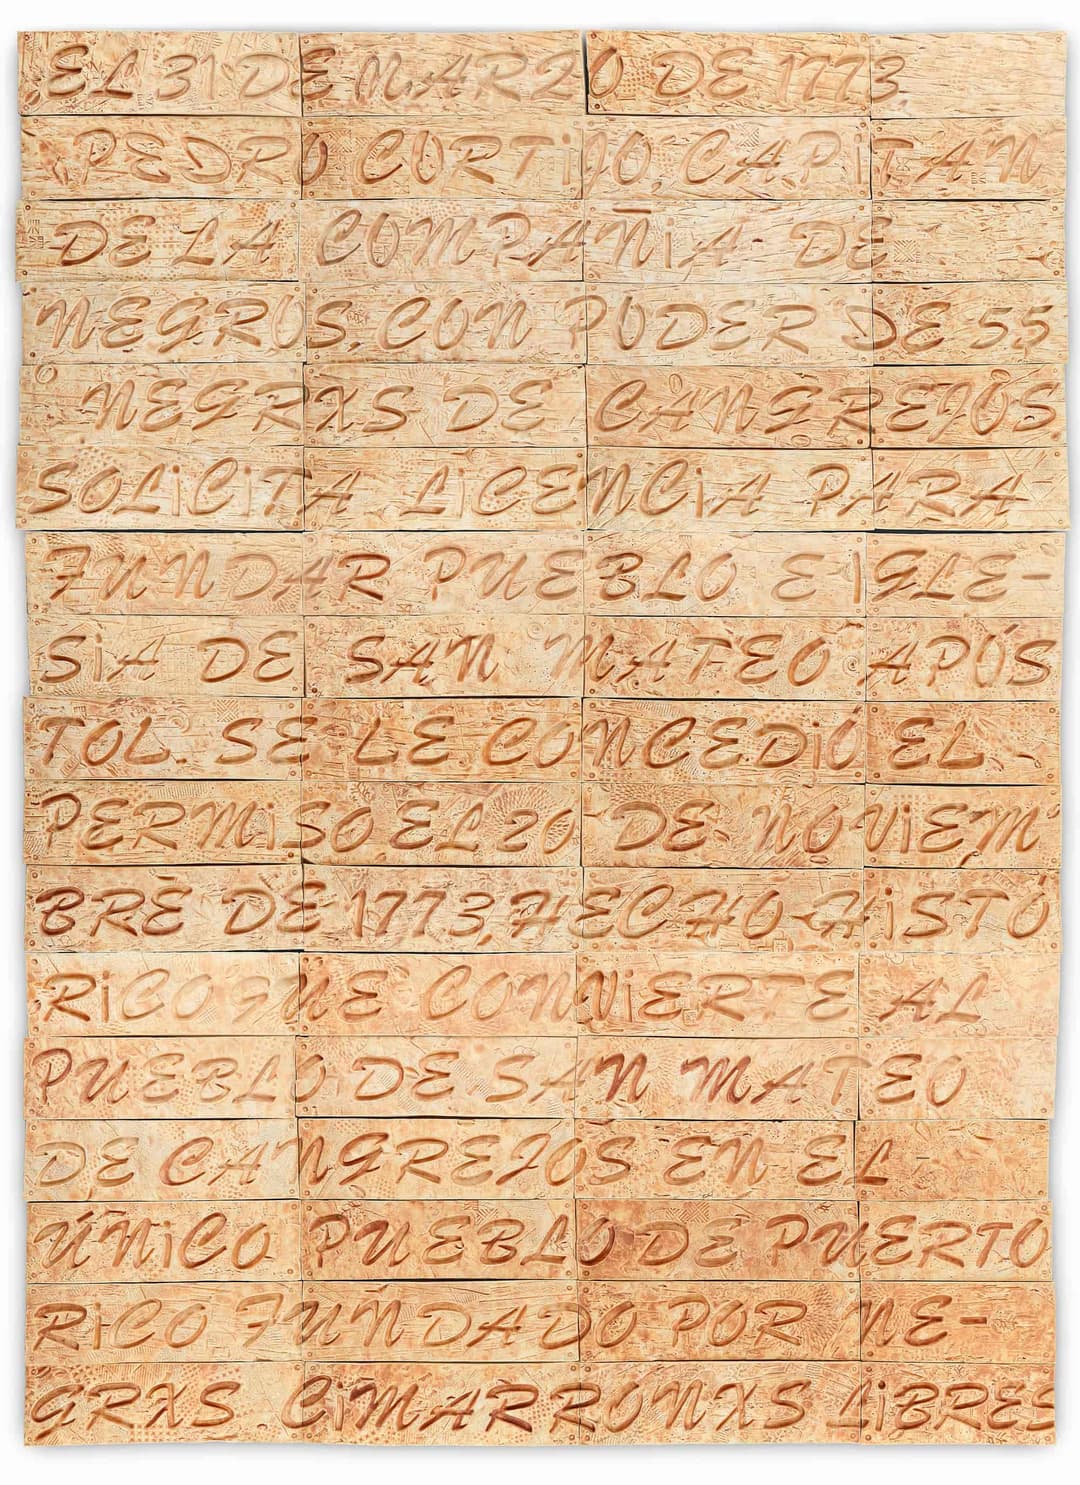 EL 31 DE MARZO DE 1773
PEDRO CORTiJO, CAPiTAN
DE LA COMPAÑiA DE
NEGROS, CON PODER DE 55
NEGRXS DE CANGREJOS
SOLiCiTA LiCENCiA PARA
FUNDAR PUEBLO E iGLE-
SiA DE SAN MATEO APÓS
TOL. SE LE CONCEDiÓ EL
PERMiSO EL 20 DE NOViEM
BRE DE 1773, HECHO HiSTÓ
RiCO QUE CONViERTE AL
PUEBLO DE SAN MATEO
DE CANGREJOS EN EL
ÚNiCO PUEBLO DE PUERTO
RiCO FUNDADO POR NE-
GRXS CiMARRONXS LiBRES